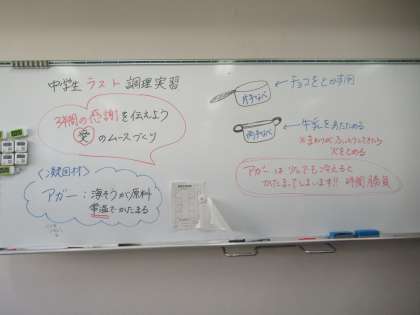 中学生 ラスト 調理実習
3年間の感謝を伝えよう
愛 のムースづくり
〈凝固材〉
アガー：海そうが原料
常温でかたまる
片手なべ
チョコをとかす用
両手なべ
牛乳をあたためる
火をとめる
アガーは少しでも冷えると
かたまってしまいます!! 時間勝負